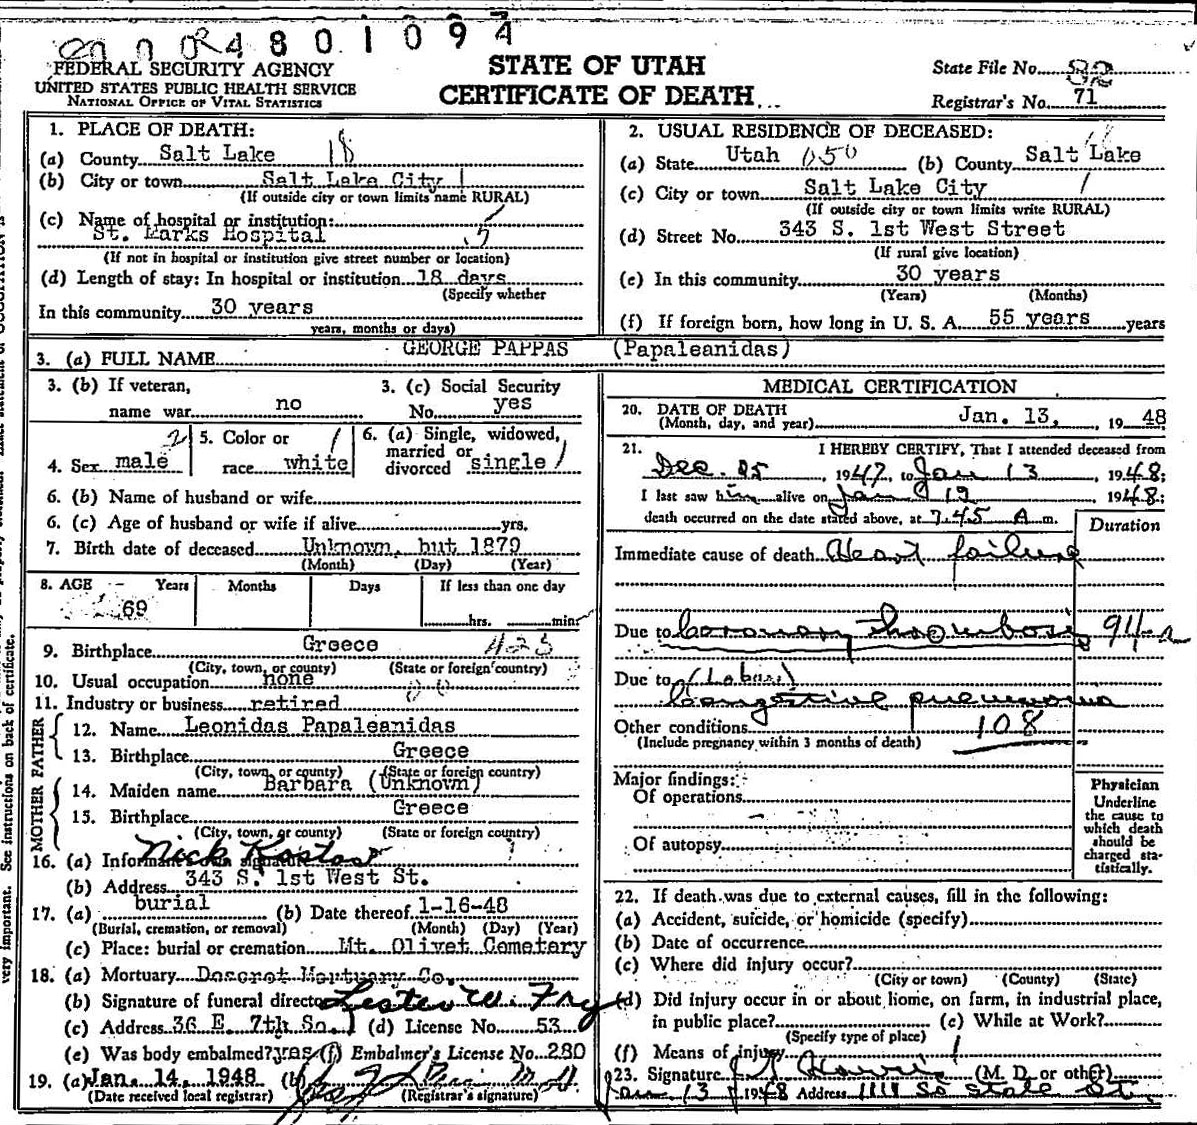 4801094
FEDERAL SECURITY AGENCY
UNITED STATES PUBLIC HEALTH SERVICE
NATIONAL OFFICE OF VITAL STATISTICS
STATE OF UTAH
CERTIFICATE OF DEATH
State File No. 82
Registrar's No. 71
1. PLACE OF DEATH:
(a) County Salt Lake 18
(b) City or town Salt Lake City 1
(If outside city or town limits name RURAL)
(c) Name of hospital or institution:
St. Marks Hospital
(If not in hospital or institution give street number or location)
(d) Length of stay: In hospital or institution 18 days
(Specify whether
In this community 30 years
years, months or days)
2. USUAL RESIDENCE OF DECEASED:
(a) State Utah 050 (b) County Salt Lake
(c) City or town Salt Lake City 1
(If outside city or town limits write RURAL)
(d) Street No. 343 S. 1st West Street
(If rural give location)
(e) In this community 30 years
(Years) (Months)
(f) If foreign born, how long in U. S. A. 55 years years
3. (a) FULL NAME GEORGE PAPPAS (Papaleanidas)
3. (b) If veteran, name war no
3. (c) Social Security No. yes
4. Sex male 2
5. Color or race white 1
6. (a) Single, widowed, married or divorced single 1
6. (b) Name of husband or wife
6. (c) Age of husband or wife if alive yrs.
7. Birth date of deceased Unknown, but 1879
(Month) (Day) (Year)
8. AGE Years Months Days If less than one day
69 hrs. min.
9. Birthplace Greece 423
(City, town, or county) (State or foreign country)
10. Usual occupation none
11. Industry or business retired
FATHER
12. Name Leonidas Papaleanidas
13. Birthplace Greece
(City, town, or county) (State or foreign country)
MOTHER
14. Maiden name Barbara (Unknown)
15. Birthplace Greece
(City, town, or county) (State or foreign country)
16. (a) Informant's own signature Nick Kostas
(b) Address 343 S. 1st West St.
17. (a) burial (b) Date thereof 1-16-48
(Burial, cremation, or removal) (Month) (Day) (Year)
(c) Place: burial or cremation Mt. Olivet Cemetery
18. (a) Mortuary Deseret Mortuary Co.
(b) Signature of funeral director Lester W. Fry
(c) Address 36 E. 7th So. (d) License No. 53
(e) Was body embalmed? yes (f) Embalmer's License No. 280
19. (a) Jan. 14, 1948 (b)
(Date received local registrar) (Registrar's signature)
MEDICAL CERTIFICATION
20. DATE OF DEATH
(Month, day, and year) Jan. 13, 19 48
21. I HEREBY CERTIFY, That I attended deceased from
Dec. 25, 1947, to Jan 13 1948;
I last saw him alive on Jan 12 1948;
death occurred on the date stated above, at 7:45 A m.
Duration
Immediate cause of death Heart failure
Due to Coronary Thrombosis 94-a
Due to (Lobar)
Congestive pneumonia
Other conditions 108
(Include pregnancy within 3 months of death)
Major findings:
Of operations
Of autopsy
Physician
Underline
the cause to
which death
should be
charged sta-
tistically.
22. If death was due to external causes, fill in the following:
(a) Accident, suicide, or homicide (specify)
(b) Date of occurrence
(c) Where did injury occur?
(City or town) (County) (State)
(d) Did injury occur in or about home, on farm, in industrial place,
in public place? (e) While at Work?
(Specify type of place)
(f) Means of injury
23. Signature (M. D. or other)
Jan 13 1948 Address 1111 So State St.
very important. See instructions on back of certificate.